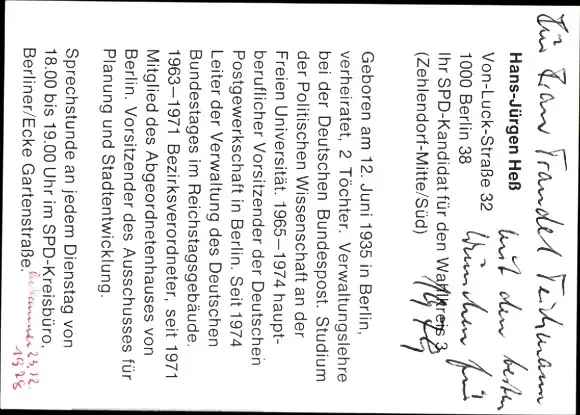 Für Frau Traudel Teichmann
mit den besten
Wünschen für
1979
Hans-Jürgen Heß
Von-Luck-Straße 32
1000 Berlin 38
Ihr SPD-Kandidat für den Wahlkreis 3
(Zehlendorf-Mitte/Süd)
Geboren am 12. Juni 1935 in Berlin,
verheiratet, 2 Töchter. Verwaltungslehre
bei der Deutschen Bundespost. Studium
der Politischen Wissenschaft an der
Freien Universität. 1965–1974 haupt-
beruflicher Vorsitzender der Deutschen
Postgewerkschaft in Berlin. Seit 1974
Leiter der Verwaltung des Deutschen
Bundestages im Reichstagsgebäude.
1963–1971 Bezirksverordneter, seit 1971
Mitglied des Abgeordnetenhauses von
Berlin. Vorsitzender des Ausschusses für
Planung und Stadtentwicklung.
Sprechstunde an jedem Dienstag von
18.00 bis 19.00 Uhr im SPD-Kreisbüro,
Berliner/Ecke Gartenstraße.
bekommen 23.12.
1978